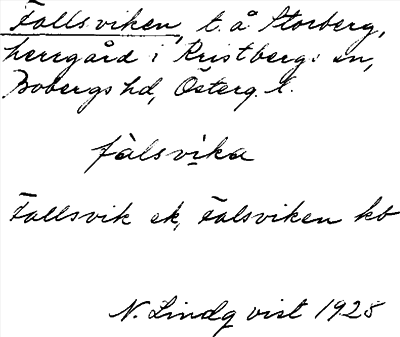 Fallsviken, t.å. Storberg,
herrgård i Kristbergs sn,
Bobergs hd, Österg. l.
fàlsvi̱ka
Fallsvik ek, Falsviken kb
N. Lindqvist 1928